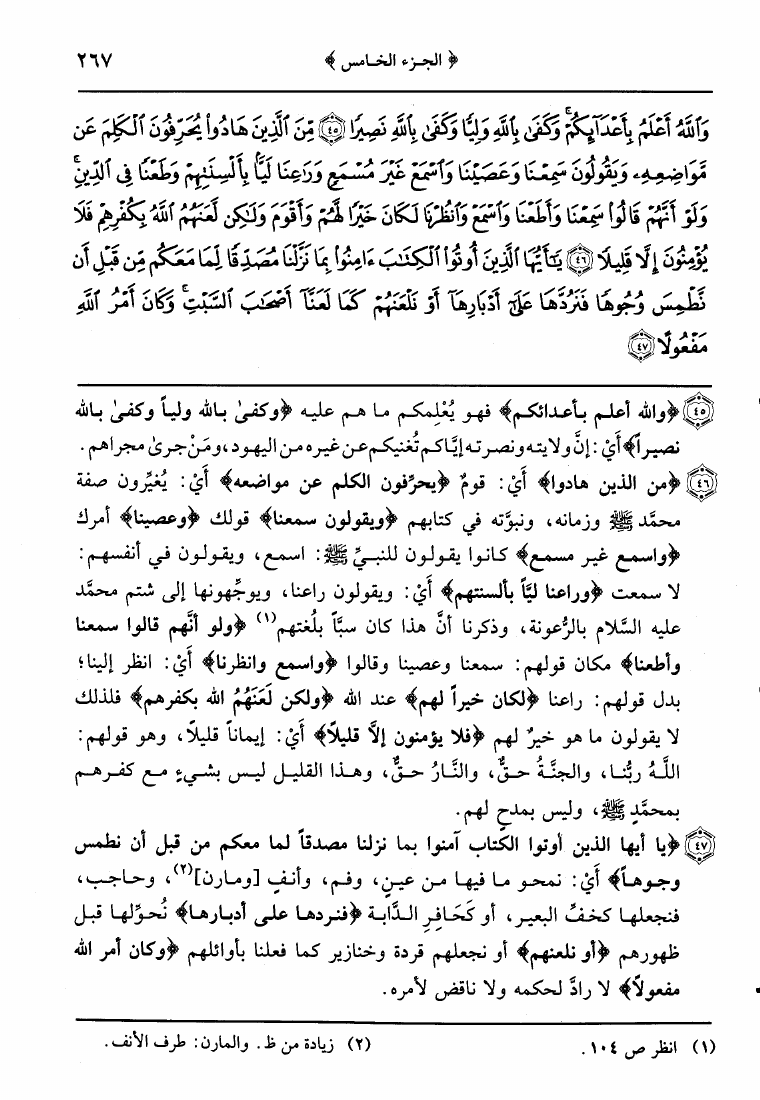 ﴿ الجزء الخامس ﴾ ٢٦٧
وَٱللَّهُ أَعْلَمُ بِأَعْدَآئِكُمْ ۚ وَكَفَىٰ بِٱللَّهِ وَلِيًّا وَكَفَىٰ بِٱللَّهِ نَصِيرًا ﴿٤٥﴾ مِّنَ ٱلَّذِينَ هَادُوا۟ يُحَرِّفُونَ ٱلْكَلِمَ عَن
مَّوَاضِعِهِۦ وَيَقُولُونَ سَمِعْنَا وَعَصَيْنَا وَٱسْمَعْ غَيْرَ مُسْمَعٍ وَرَٰعِنَا لَيًّۢا بِأَلْسِنَتِهِمْ وَطَعْنًا فِى ٱلدِّينِ ۚ
وَلَوْ أَنَّهُمْ قَالُوا۟ سَمِعْنَا وَأَطَعْنَا وَٱسْمَعْ وَٱنظُرْنَا لَكَانَ خَيْرًا لَّهُمْ وَأَقْوَمَ وَلَٰكِن لَّعَنَهُمُ ٱللَّهُ بِكُفْرِهِمْ فَلَا
يُؤْمِنُونَ إِلَّا قَلِيلًا ﴿٤٦﴾ يَٰٓأَيُّهَا ٱلَّذِينَ أُوتُوا۟ ٱلْكِتَٰبَ ءَامِنُوا۟ بِمَا نَزَّلْنَا مُصَدِّقًا لِّمَا مَعَكُم مِّن قَبْلِ أَن
نَّطْمِسَ وُجُوهًا فَنَرُدَّهَا عَلَىٰٓ أَدْبَارِهَآ أَوْ نَلْعَنَهُمْ كَمَا لَعَنَّآ أَصْحَٰبَ ٱلسَّبْتِ ۚ وَكَانَ أَمْرُ ٱللَّهِ
مَفْعُولًا ﴿٤٧﴾
﴿٤٥﴾ ﴿والله أعلم بأعدائكم﴾ فهو يُعْلِمكم ما هم عليه ﴿وكفىٰ بالله ولياً وكفىٰ بالله
نصيراً﴾ أيْ: إنَّ ولايته ونصرته إيَّاكم تُغنيكم عن غيره من اليهود، ومَنْ جرىٰ مجراهم.
﴿٤٦﴾ ﴿من الذين هادوا﴾ أيْ: قومٌ ﴿يحرِّفون الكلم عن مواضعه﴾ أيْ: يُغيِّرون صفة
محمَّد ﷺ وزمانه، ونبوَّته في كتابهم ﴿ويقولون سمعنا﴾ قولك ﴿وعصينا﴾ أمرك
﴿واسمع غير مسمع﴾ كانوا يقولون للنبيِّ ﷺ: اسمع، ويقولون في أنفسهم:
لا سمعت ﴿وراعنا ليَّاً بألسنتهم﴾ أيْ: ويقولون راعنا، ويوجِّهونها إلى شتم محمَّد
عليه السَّلام بالرُّعونة، وذكرنا أنَّ هذا كان سبَّاً بلُغتهم(١) ﴿ولو أنَّهم قالوا سمعنا
وأطعنا﴾ مكان قولهم: سمعنا وعصينا وقالوا ﴿واسمع وانظرنا﴾ أيْ: انظر إلينا؛
بدل قولهم: راعنا ﴿لكان خيراً لهم﴾ عند الله ﴿ولكن لَعَنَهُمُ الله بكفرهم﴾ فلذلك
لا يقولون ما هو خيرٌ لهم ﴿فلا يؤمنون إلَّا قليلاً﴾ أيْ: إيماناً قليلاً، وهو قولهم:
اللَّهُ ربُّنا، والجنَّةُ حقٌّ، والنَّارُ حقٌّ، وهذا القليل ليس بشيءٍ مع كفرهم
بمحمَّدٍ ﷺ، وليس بمدحٍ لهم.
﴿٤٧﴾ ﴿يا أيها الذين أوتوا الكتاب آمنوا بما نزلنا مصدقاً لما معكم من قبل أن نطمس
وجوهاً﴾ أيْ: نمحو ما فيها من عينٍ، وفمٍ، وأنفٍ [ومارن](٢)، وحاجب،
فنجعلها كخفِّ البعير، أو كَحَافِرِ الدَّابة ﴿فنردها على أدبارها﴾ نُحوِّلها قبل
ظهورهم ﴿أو نلعنهم﴾ أو نجعلهم قردة وخنازير كما فعلنا بأوائلهم ﴿وكان أمر الله
مفعولاً﴾ لا رادَّ لحكمه ولا ناقض لأمره.
(١) انظر ص ١٠٤. (٢) زيادة من ظ. والمارن: طرف الأنف.